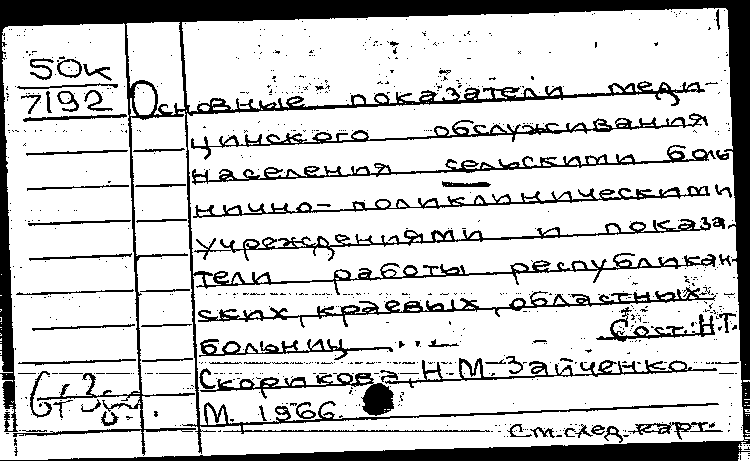 50к
7192
Основные показатели меди-
цинского обслуживания
населения сельскими боль
нично-поликлиническими
учреждениями и показа-
тели работы республикан-
ских, краевых, областных
больниц ... - Сост.: Н.Т.
Скорикова, Н.М. Зайченко.
М., 1966.
См. след. карт.